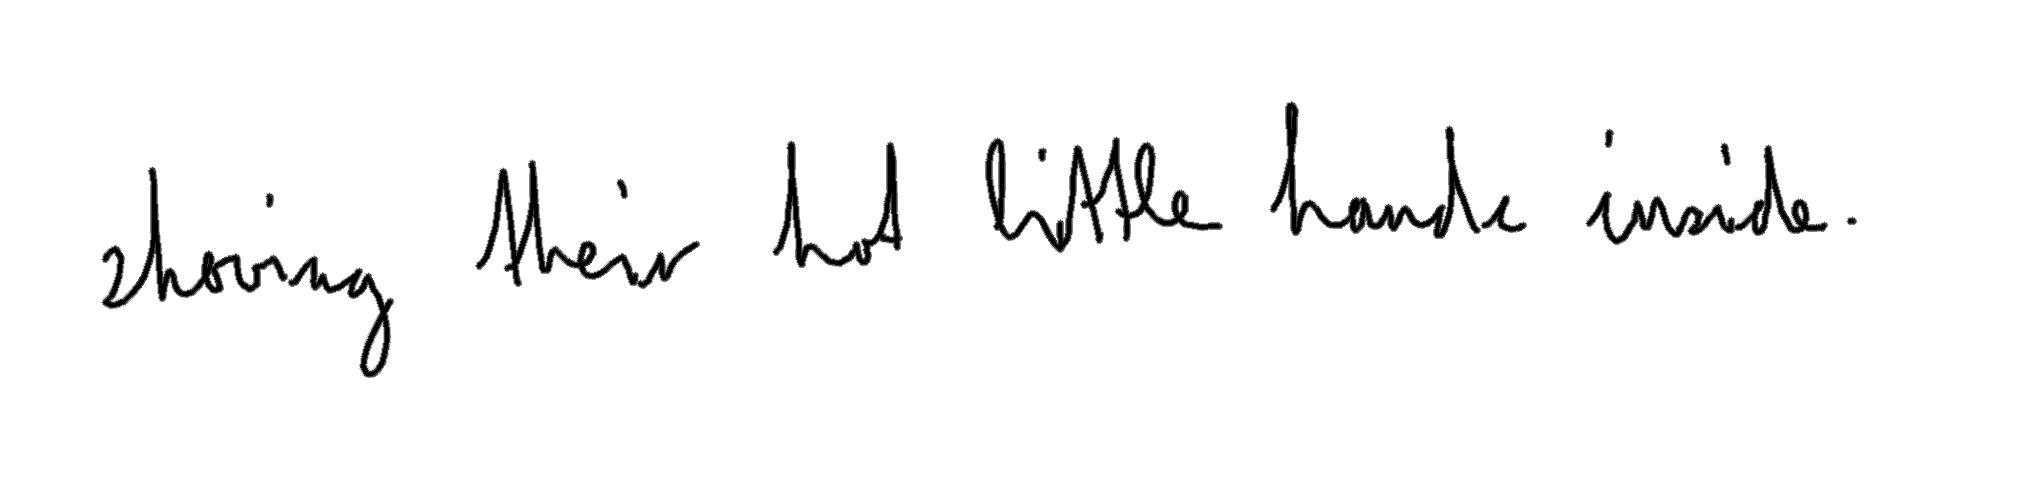 shoving their hot little hands inside.